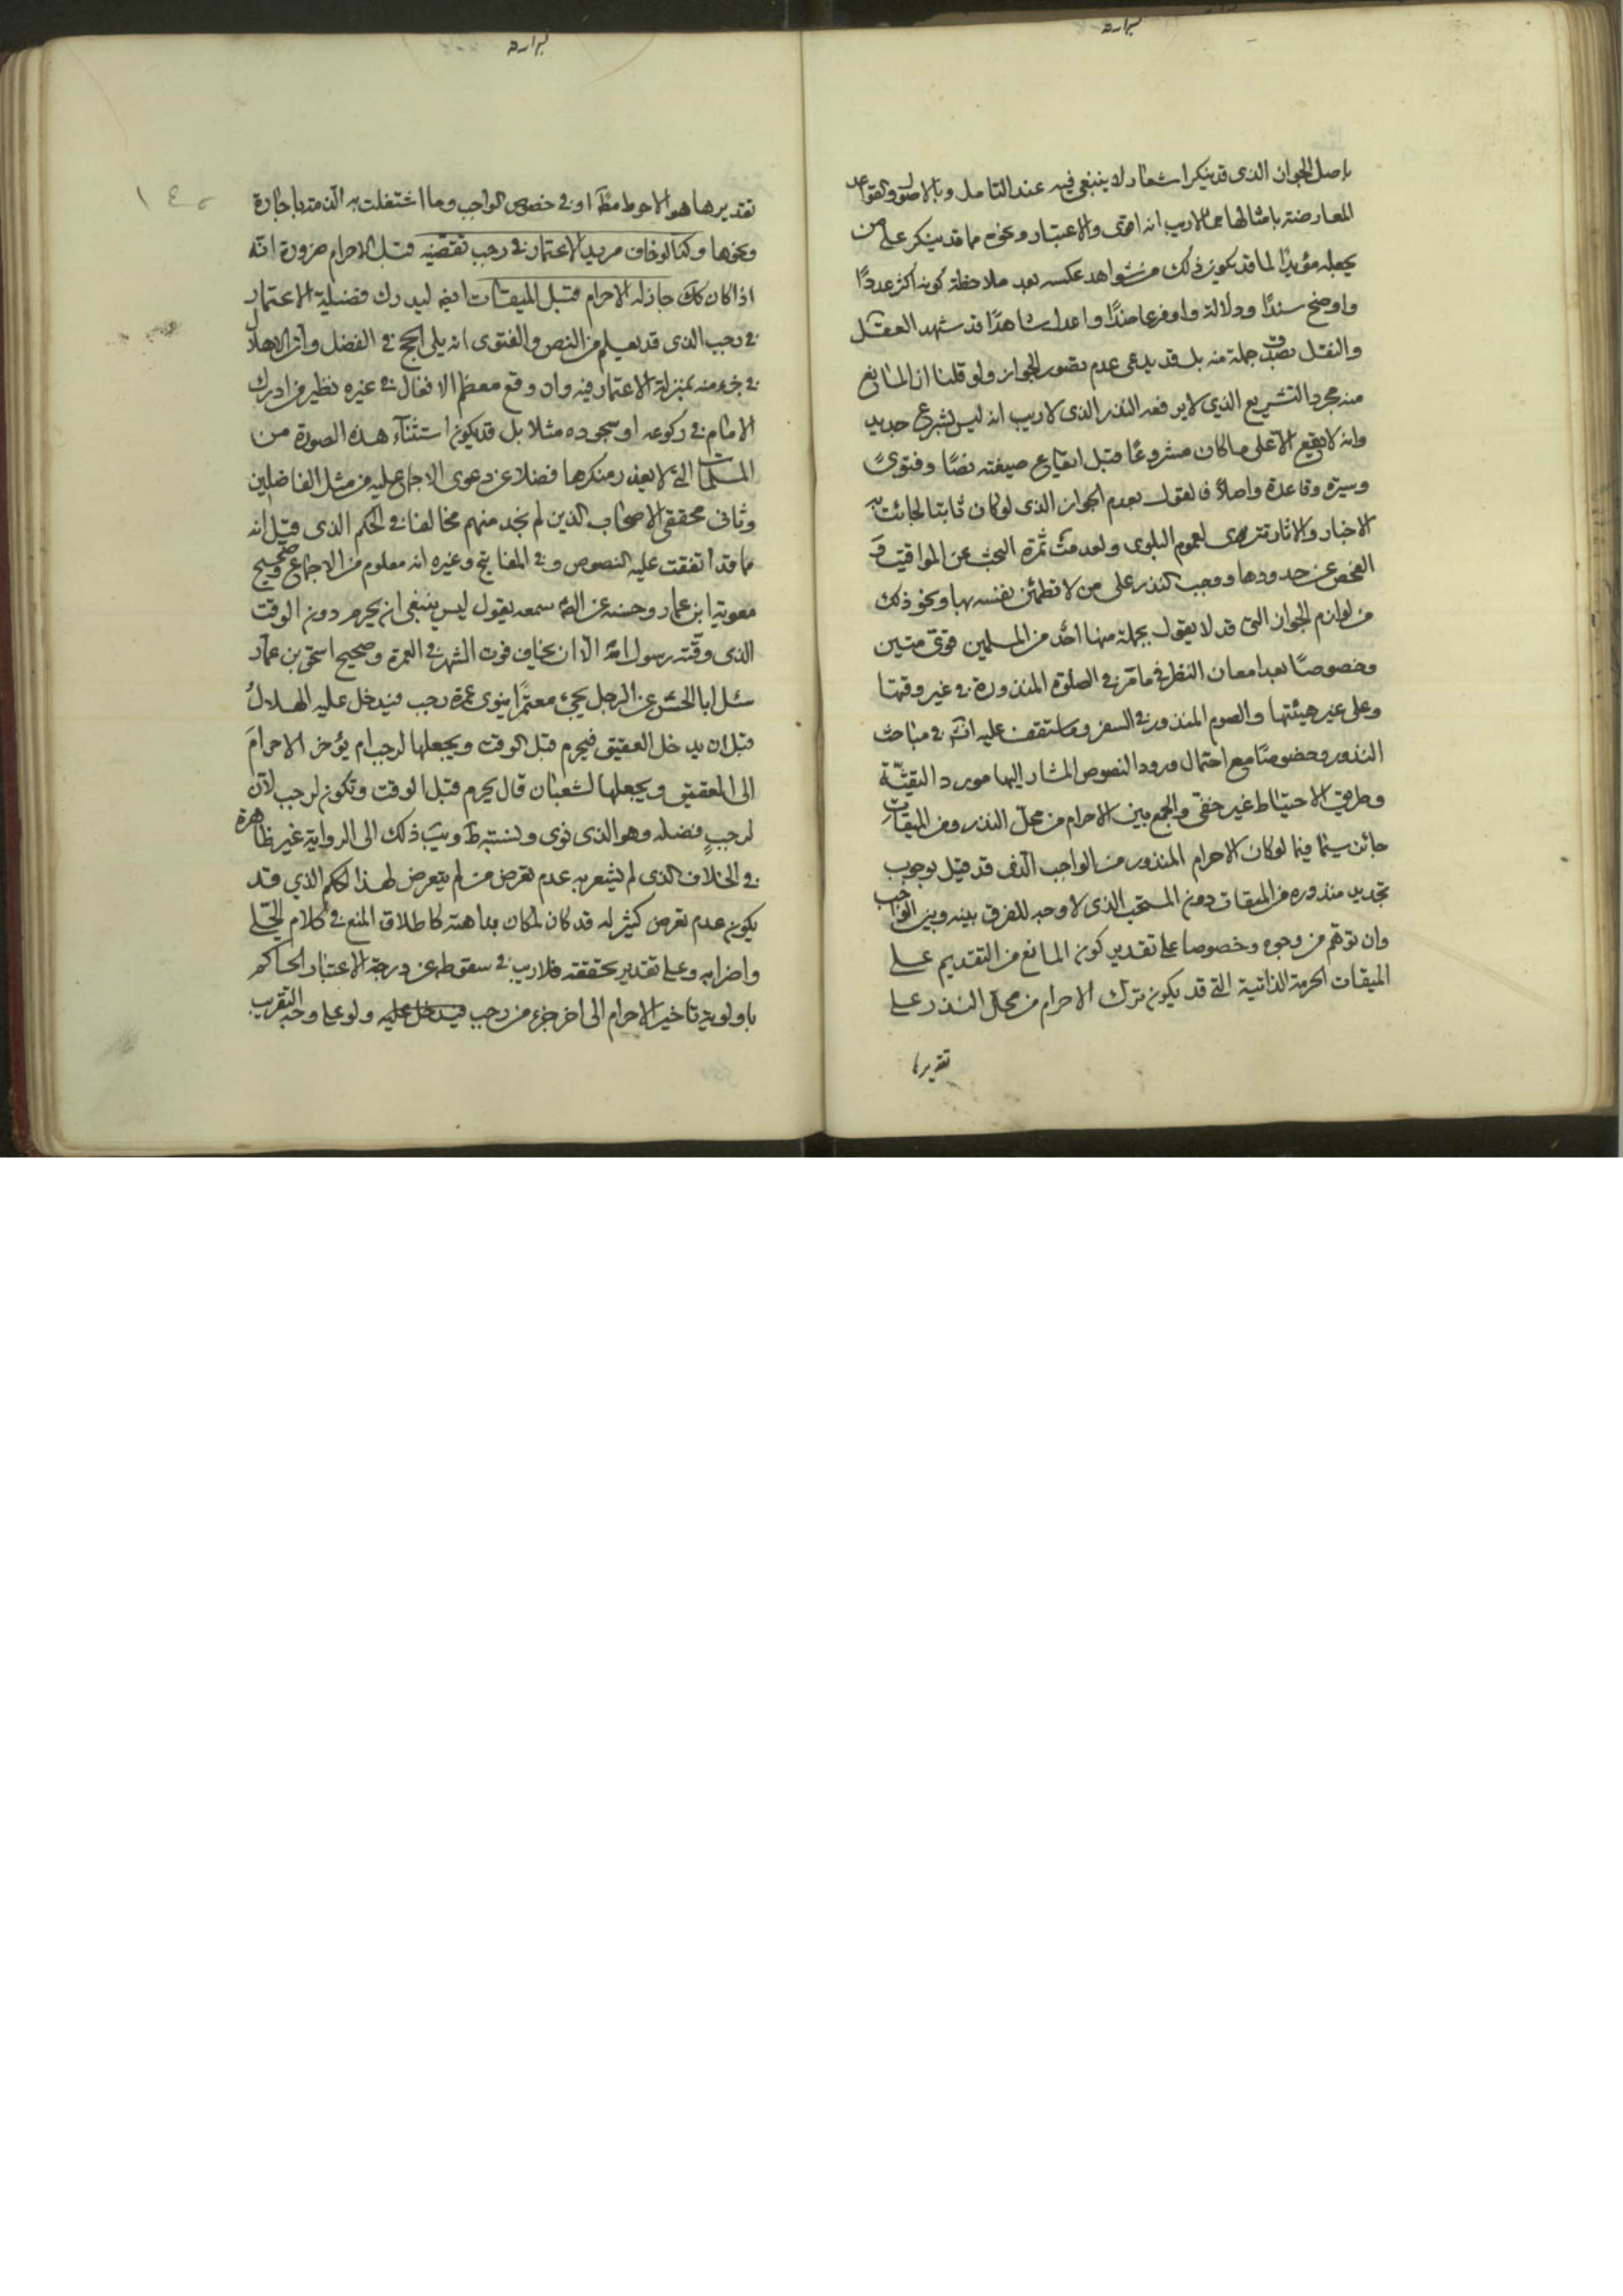 باصل الجواز الذى قد ينكر اشعار لا ينبغى فيه عند التامل وبالاصول والقواعد
المعارضة بامثالها مما لا ريب انه اقوى والاعتبار ونحوه مما قد ينكر على من
يجعله مؤيدًا لما قد يكون ذلك من شواهد عكسه بعد ملاحظة كونه اكثر عددًا
واوضح سندًا ودلالة واوفر عاضدًا واعدل شاهدًا قد شهد العقل
والنقل بصدق جملة منه بل قد يدعى عدم تصور الجواز ولو قلنا ان المانع
منه مجرد التشريع الذي لا يرفعه النذر الذى لا ريب انه ليس بشرع جديد
وانه لا يقع الا على ما كان مشروعًا قبل ايقاع صيغته نصًا وفتوىً
وسيرة وقاعدة واصلاً فالقول بعدم الجواز الذى لو كان ثابتا لجائت به
الاخبار والاثار تترى لعموم البلوى ولعدمت ثمرة البحث عن المواقيت و
الفحص عن حدودها ووجب النذر على من لا تطمئن نفسه بها ونحو ذلك
من لوازم الجواز التى قد لا يقول بجملة منها احد من المسلمين قوىّ متين
وخصوصًا بعد امعان النظر فى ما مرّ فى الصلوة المنذورة فى غير وقتها
وعلى غير هيئتها والصوم المنذور فى السفر وما ستقف عليه انشه فى مباحث
النذور وخصوصًا مع احتمال ورود النصوص المشار اليها مورد التقيّة
وطريق الاحتياط غير خفىّ والجمع بين الاحرام من محلّ النذر ومن الميقات
جائز سيّما فيما لو كان الاحرام المنذور من الواجب الذى قد قيل بوجوب
تجديد منذوره من الميقات دون المستحب الذى لا وجه للفرق بينه وبين الواجب
وان توهم من وجوه وخصوصا على تقدير كون المانع من التقديم على
الميقات الحرمة الذاتية التى قد يكون ترك الاحرام من محلّ النذر على
تقديرها
تقديرها هو الاحوط مطّ او فى خصوص الواجب وما اشتغلت به الذمة باجارة
ونحوها وكذا لو خاف مريد الاعتمار فى رجب تقضّيه قبل الاحرام ضرورة انّه
اذا كان كك جاز له الاحرام قبل الميقات ايضا ليدرك فضيلة الاعتمار
فى رجب الذى قد يعلم من النص والفتوى انه يلى الحج فى الفضل وان الاهلال
فى جزء منه بمنزلة الاعتمار فيه وان وقع معظم الافعال فى غيره نظير من ادرك
الامام فى ركوعه او سجوده مثلا بل قد يكون استثناء هذه الصورة من
المسلّمات التى لا يعذر منكرها فضلا عن دعوى الاجماع عليه من مثل الفاضلين
وثانى محققى الاصحاب الذين لم نجد منهم مخالفا فى الحكم الذى قيل انه
مما قد اتفقت عليه النصوص وفى المفاتيح وغيره انه معلوم من الاجماع وصحيح
معوية ابن عمار وحسنه عن الصّ سمعه يقول ليس ينبغى ان يحرم دون الوقت
الذى وقّته رسول الله الا ان يخاف فوت الشهر فى العمرة وصحيح اسحق بن عمار
سئل ابا الحسن عن الرجل يجئ معتمرًا ينوى عمرة رجب فيدخل عليه الهلال
قبل ان يدخل العقيق فيحرم قبل الوقت ويجعلها لرجب ام يؤخر الاحرام
الى العقيق ويجعلها لشعبان قال يحرم قبل الوقت وتكون لرجب لان
لرجب فضله وهو الذى نوى ونسبة ط و يب ذلك الى الرواية غير ظاهرة
فى الخلاف الذى لم يشعر به عدم تعرض من لم يتعرض لهذا الحكم الذي قد
يكون عدم تعرض كثير له قد كان لمكان بداهته كاطلاق المنع فى كلام الحلّى
واضرابه وعلى تقدير تحققه فلا ريب فى سقوطه عن درجة الاعتبار الحاكم
باولوية تاخير الاحرام الى اخر جزء من رجب فيدخل عليه ولو على وجه التقريب